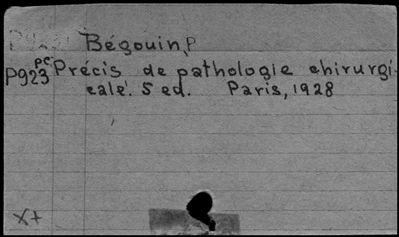 Bégouin, P
PC
P923 Précis de pathologie chirurgi-
cale. 5 ed. Paris, 1928
X+